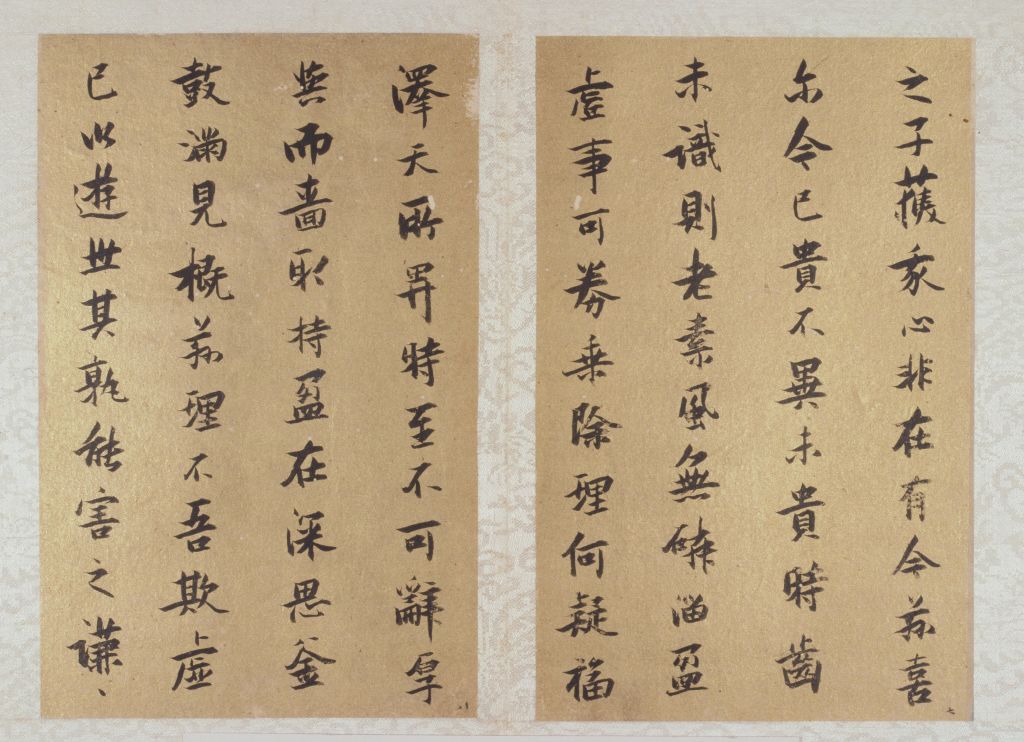 之子獲我心非在有今茲喜
尔令已貴不異未貴時齒
未識則老素風無磷淄盈
虛事可券乘除理何疑福
七
澤天所畀時至不可辭厚
與而嗇取持盈在深思釜
鼓滿見概茲理不吾欺虛
已以遊世其孰能害之謙〻
八